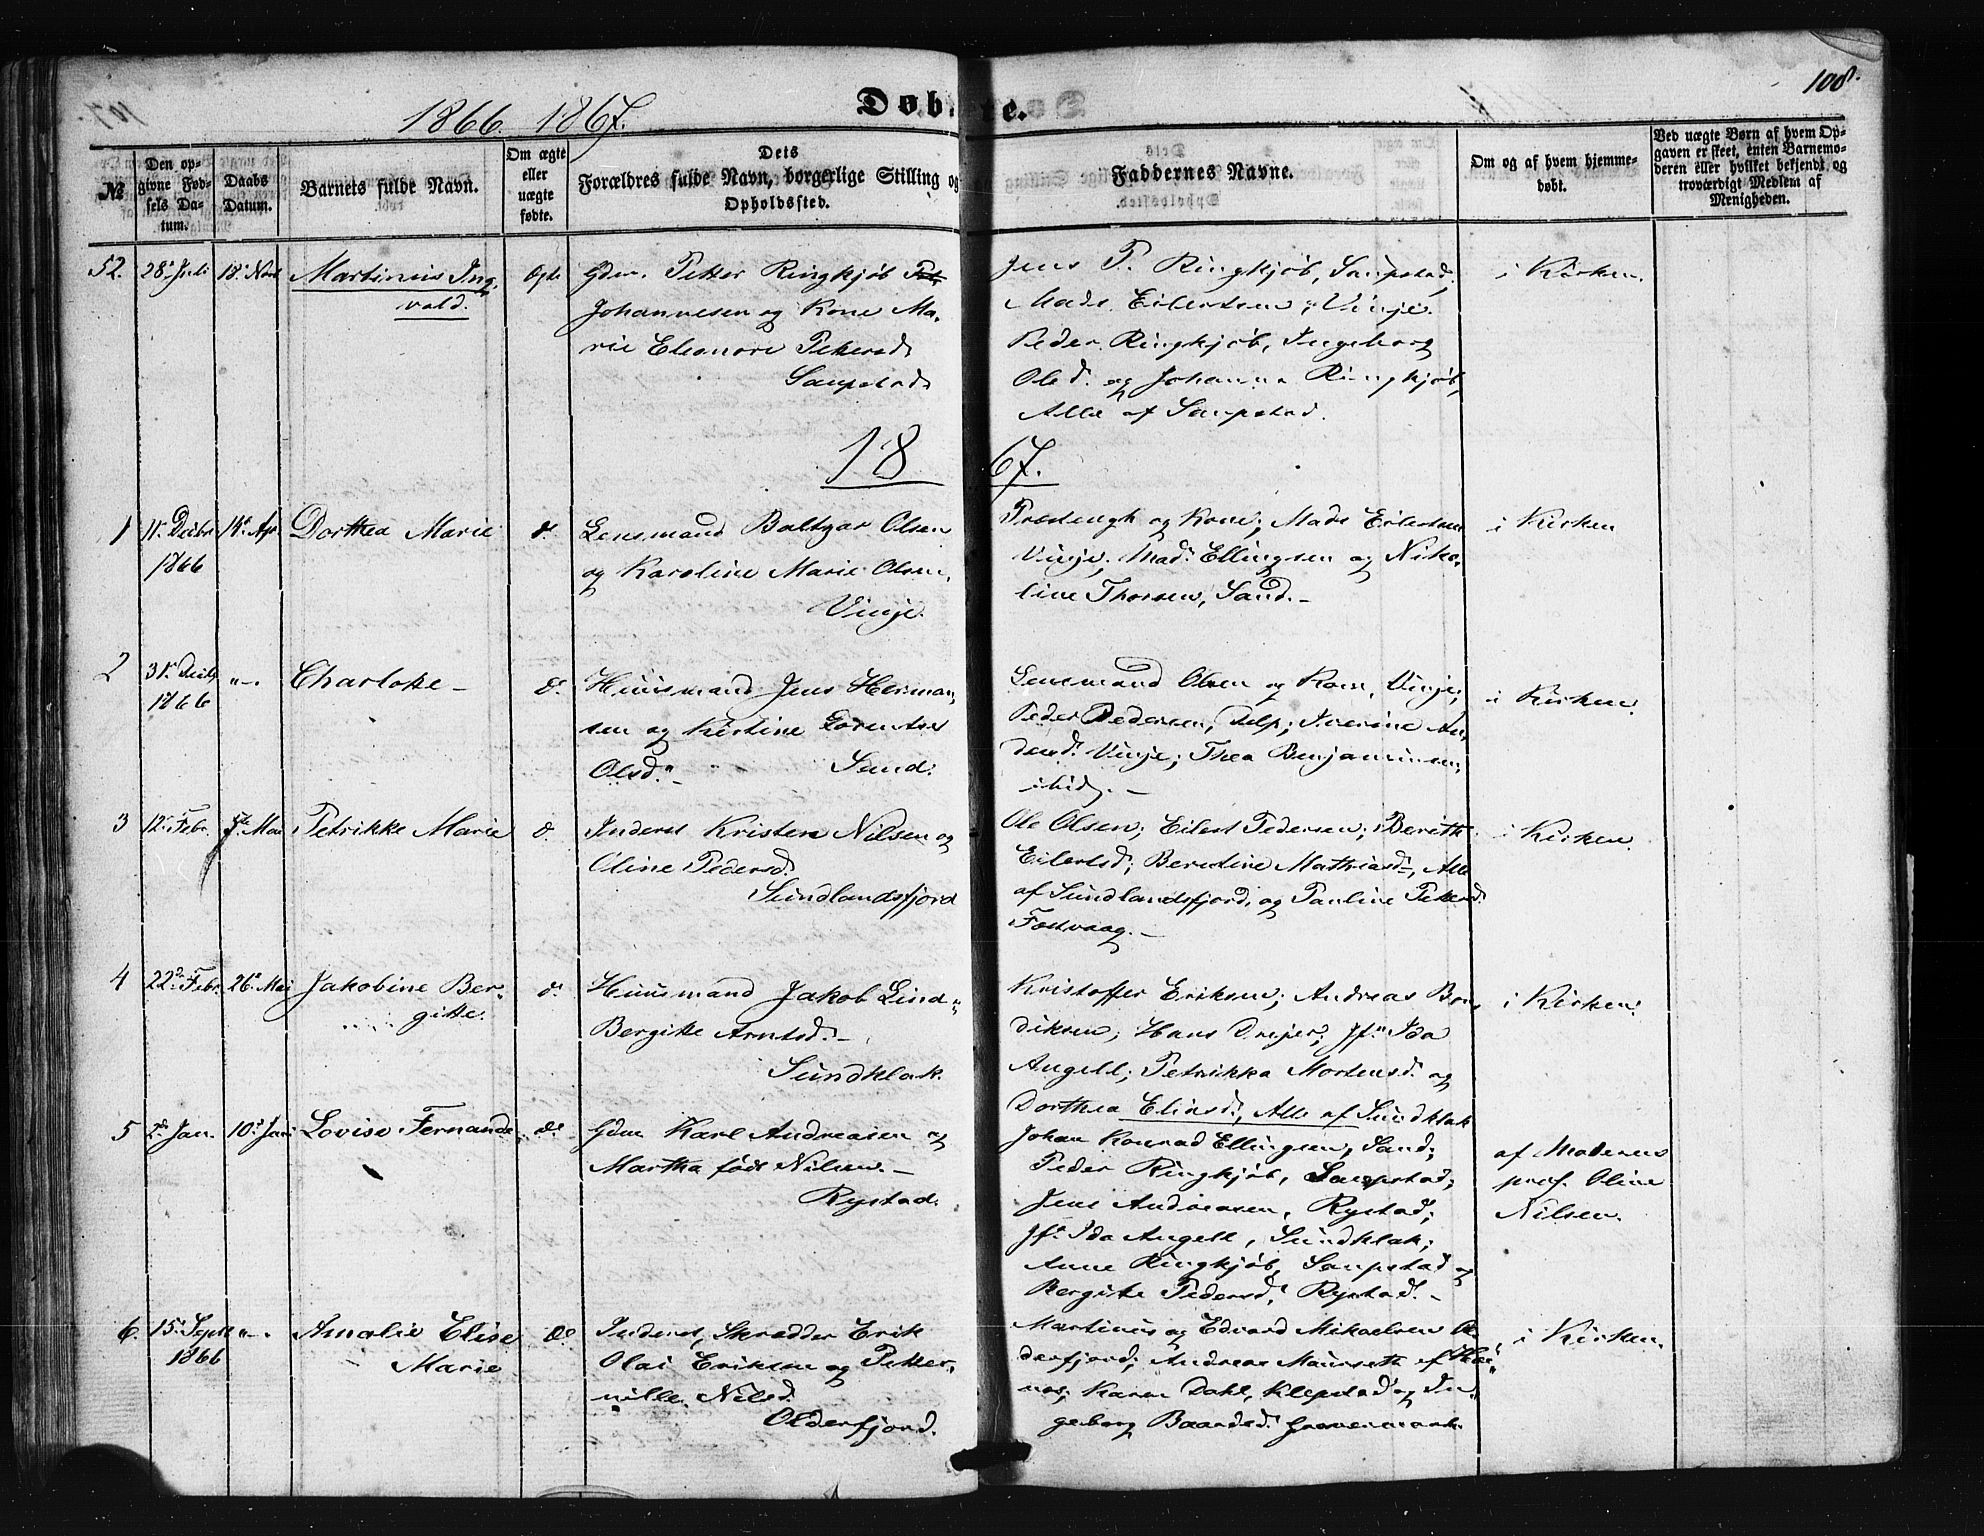 1866. 1867.
Døbte.
108.
№
Den opgivne Fødsels Datum.
Daabs Datum.
Barnets fulde Navn.
Om ægte eller uægte fødte.
Dets Forældres fulde Navn, borgerlige Stilling og Opholdssted.
Faddernes Navne.
Om og af hvem hjemmedøbt.
Ved uægte Børn af hvem Opgaven er skeet, enten Barnemoderen eller hvilket bekjendt og troværdigt Medlem af Menigheden.
52. 28. Juli 18. Novb Martinus Ingvald. ægte
Gdm. Petter Ringkjøb
Johannesen og Kone Ma-
rie Eleonore Pettersd
Saupstad
Jens P. Ringkjøb, Saupstad,
Mads Eilertsen, Vinje.
Peder Ringkjøb, Ingeborg
Olsd. og Johanna Ringkjøb,
Alle af Saupstad.
i Kirken.
1867.
1 11. Decbr 1866 14. Apr. Dorthea Marie d.
Lensmand Baltzar Olsen
og Karoline Marie Olsen,
Vinje.
og Kone, Mads Eilertsen
Vinje, Mad. Ellingsen og Niko-
line Thorsen, Sand.-
i Kirken
2 31. Decbr 1866 "-. Charlotte - d.
Huusmand Jens Herman-
sen og Kirstine Lorentze
Olsd.- Sund.
Lensmand Olsen og Kone, Vinje;
Peder Pedersen, Delp; Iverine An-
dersd. Vinje; Thea Benjaminsen,
ibid. -
i Kirken.
3 12. Febr. Mai Petrikke Marie d.
Inderst Kristen Nilsen og
Oline Pedersd.
Sundlandsfjord
Ole Olsen; Eilert Pedersen; Berith
Eilertsd; Berntine Mathiasd-, Alle
af Sundlandsfjord, og Pauline Pettersd.
i Kirken.
4 22. Febr. 26. Mai Jakobine Ber-
gitte. d.
Huusmand Jakob Lind-
Bergitte Arntsd. -
Sundklak.
Kristoffer Eriksen; Andreas Ben
diksen; Hans Dreyer; Jf. Ida
Angell; Petrikka Mortensd. og
Dorthea Eliasd., Alle af Sundklak
i Kirken.
5 2. Jan. 10. Juni Lovise Fernanda d.
Gdm Karl Andreasen og
Martha født Nilsen. -
Rystad.
Johan Konrad Ellingsen, Sand;
Peder Ringkjøb, Saupstad;
Jens Andreasen, Rystad;
Jf. Ida Angell, Sundklak;
Anne Ringkjøb, Saupstad og
Bergitte Pedersd, Rystad. -
af Moderens
Oline
Nilsen.
6. 15. Septb 1866 "-. Amalie Elise
Marie d.
Inderst, Skrædder Erik
Olai Eriksen og Petter-
nille Nilsd.
Olderfjord.
Martinus og Edvard Mikaelsen Ol-
derfjord; Andreas
Karen Dahl, Klepstad og In-
geborg Baardsd.
i Kirken.